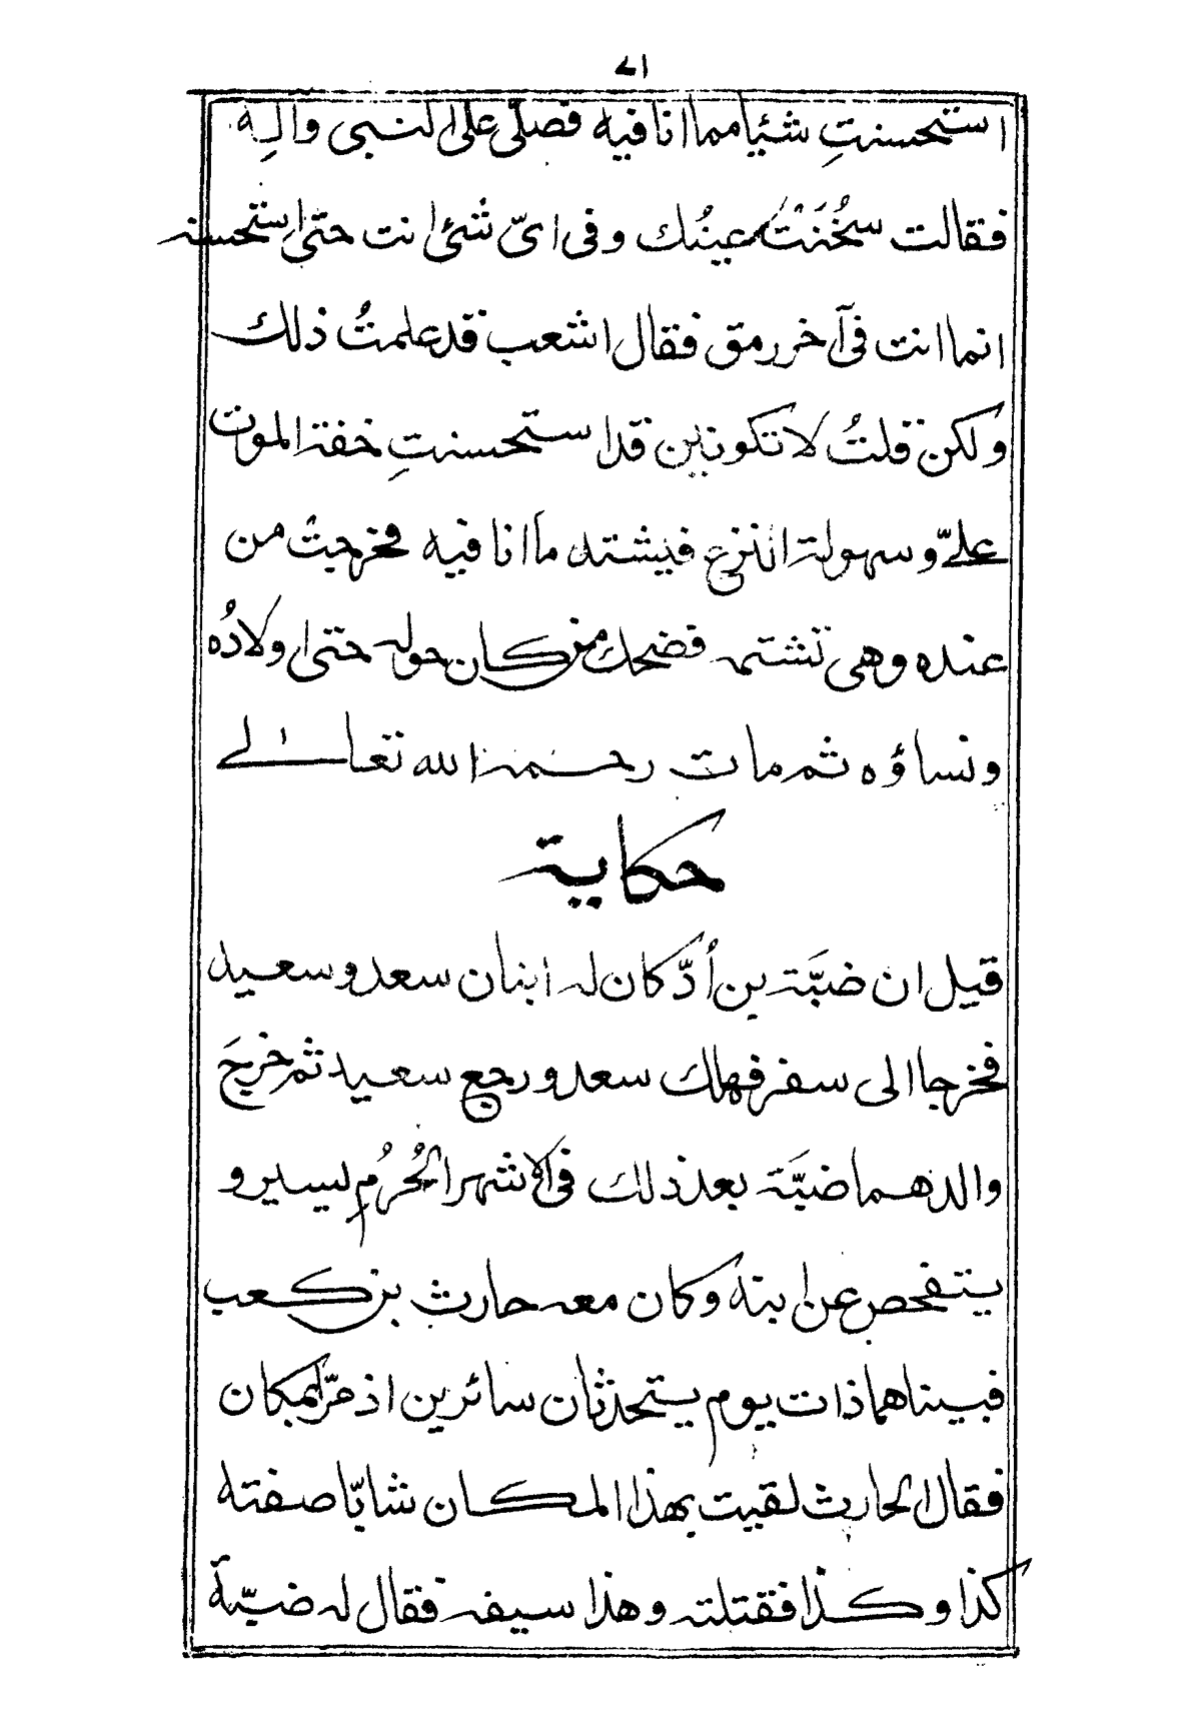 ٧١
استحسنتِ شئيا مما انا فيه فصلّى على النبى واٰلِهٖ
فقالت سَخُنَتْ عينُك وفى اىّ شىُٔ انت حتى اِستحسنه
انما انت فى آخر رمق فقال اشعب قد علمتُ ذلك
ولكن قلتُ لا تكونين قد استحسنتِ خفة الموت
علىّ وسهولة النزع فيشتد ما انا فيه فخرجت من
عنده وهى تشتمه فضحك من كان حوله حتى اولادُه
ونساؤه ثم مات رحمة الله تعالىٰ
حكاية
قيل ان ضبَّة بن اُدّ كان له ابنان سعد وسعيد
فخرجا الى سفر فهلك سعد ورجع سعيد ثم خرجَ
والدهما ضبَّة بعد ذلك فى الاشهر الحُرُم يسير و
يتفحص عن ابنه وكان معه حارث بن كعب
فبيناهما ذات يوم يتحدثان سائرين اذ مرّا بمكان
فقال الحارث لقيت بهذا المكان شابّا صفته
كذا وكذا فقتلته وهذا سيفه فقال له ضبّة